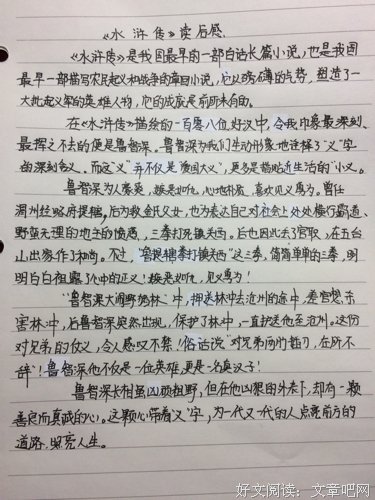 《水浒传》读后感
《水浒传》是我国最早的一部白话长篇小说，也是我国
最早一部描写农民起义和战争的章回小说，它以磅礴的气势，塑造了一
大批起义军的英雄人物，它的成就是前所未有的。
在《水浒传》描绘的一百零八位好汉中，令我印象最深刻、
最挥之不去的便是鲁智深。鲁智深为我们生动形象地诠释了"义"字
的深刻含义。而这"义"并不仅是"爱国大义"，更多是指贴近生活的"小义。
鲁智深为人豪爽，嫉恶如仇，心地朴质，喜欢见义勇为。曾任
渭州经略府提辖，后为救金氏父女，也为表达自己对社会上处处横行霸道、
野蛮无理的地主的愤慨，三拳打死镇关西。后也因此丢了官职，在五台
山出家作了和尚。不过，"鲁提辖拳打镇关西"这三拳，简简单单的三拳，明
明白白袒露了心中的正义！嫉恶如仇，见义勇为！
"鲁智深大闹野猪林"中，押送林冲去沧州的途中，差官想杀
害林冲，后鲁智深突然出现，保护了林冲，一直护送他至沧州。这份
对兄弟的仗义，令人感叹不禁！俗话说"对兄弟两肋插刀，在所不
辞"！鲁智深他不仅是一位英雄，更是一名真汉子！
鲁智深长相虽凶顽粗野，但在他凶狠的外表下，却有一颗
善良而真诚的心。这颗心带着"义"字，为一代又一代的人点亮前方的
道路，照亮人生。
好文阅读：文章吧网